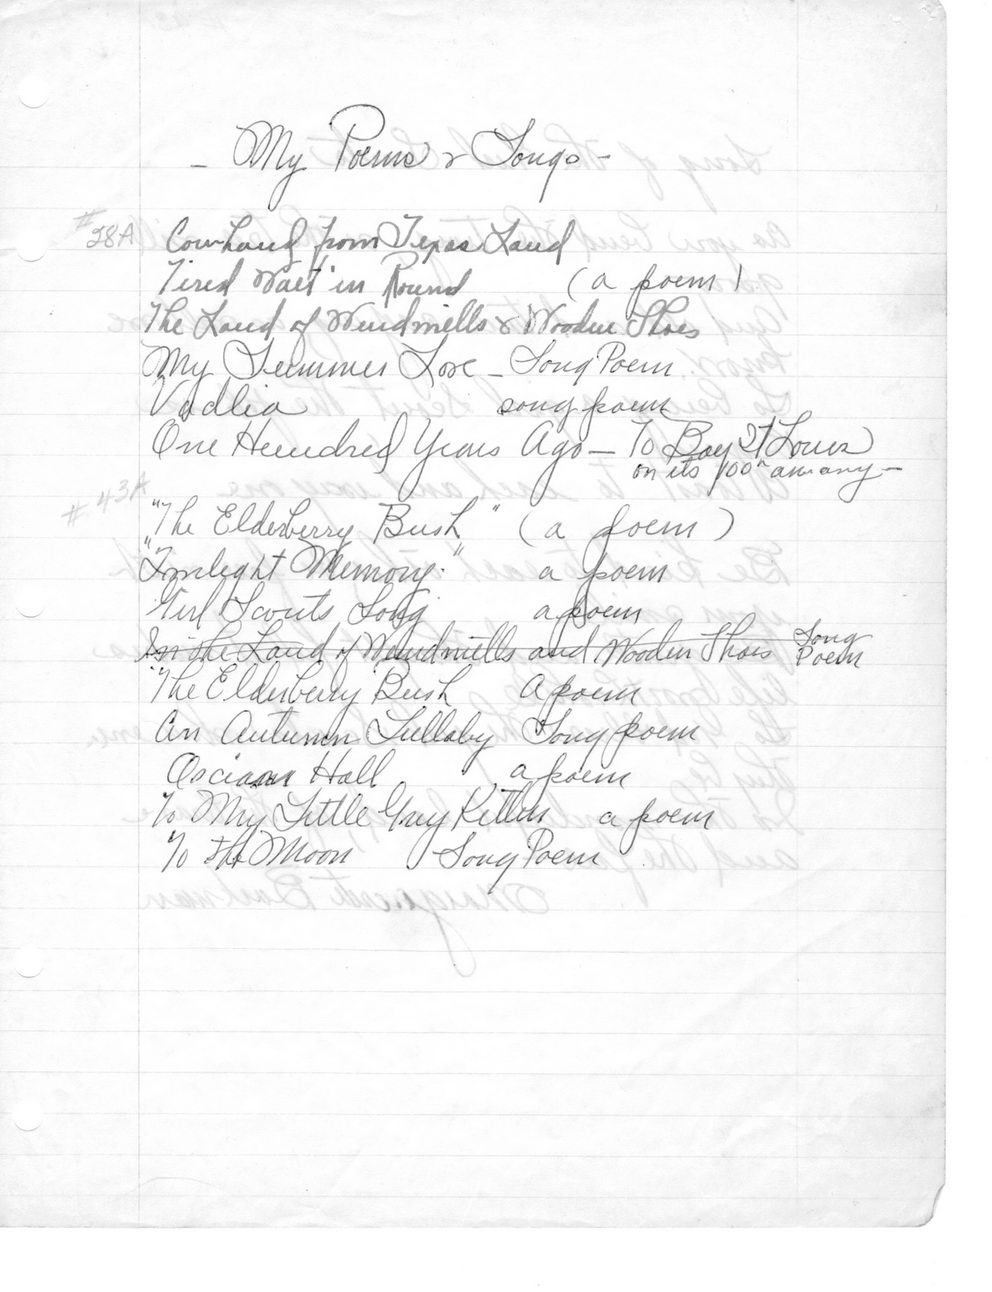 - My Poems & Songs -
#28A Cowhand from Texas Land
Tired Wait'in Round (a poem)
The Land of Windmills & Wooden Shoes
My Summer Love - Song Poem
Vadlia song poem
One Hundred Years Ago - To Bay St Louis
on its 100th
#43A
"The Elderberry Bush" (a poem)
"Twilight Memory." a poem
Girl Scouts Song a poem
In the Land of Windmills and Wooden Shoes Song Poem
"The Elderberry Bush a poem
An Autumn Lullaby Song poem
Hall a poem
To My Little Grey Kitten a poem
To the Moon Song Poem